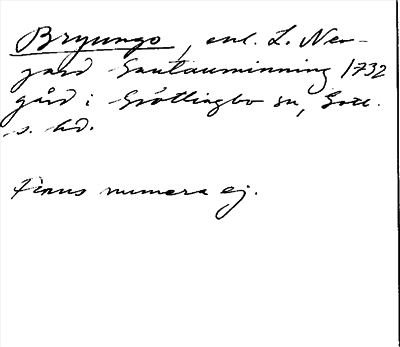 Bryungo, enl. L. Neo-
gard Gautauminning 1732
gård i Gröttlingbo sn, Gotl.
s. hd.
Finns numera ej.